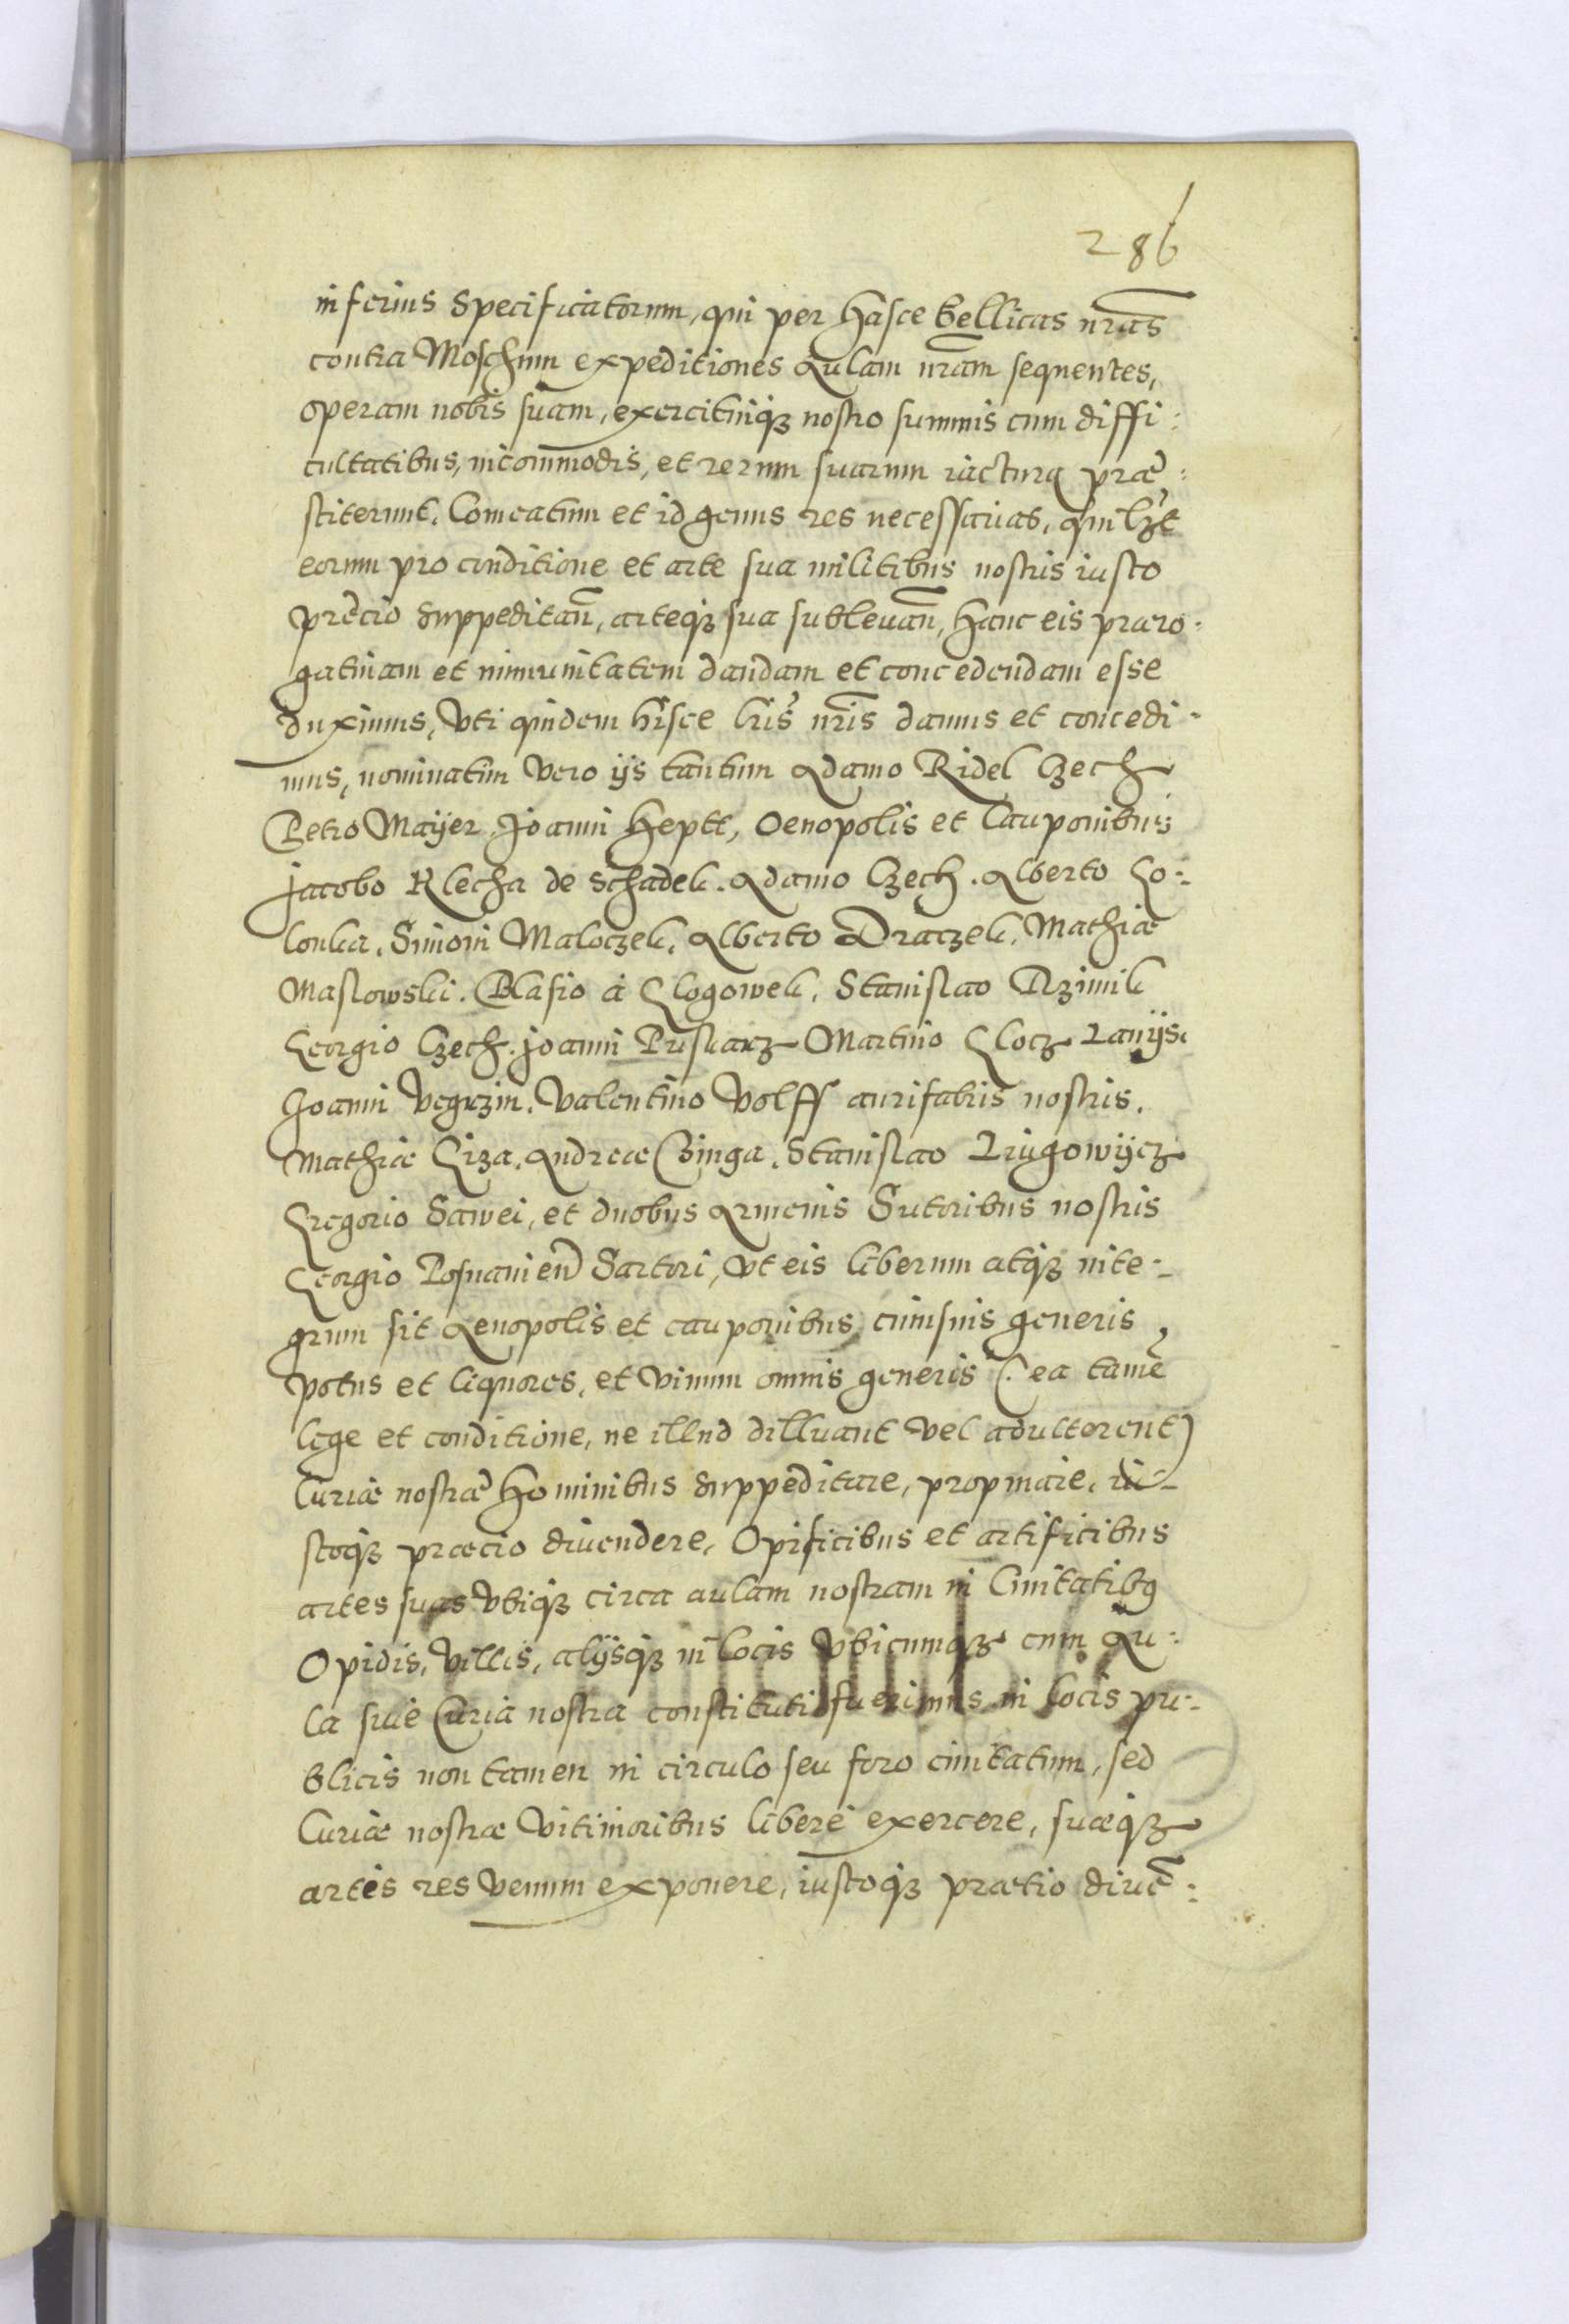 286
inferius specificatorum, qui per hasce bellicas nras
contra Moschum expeditiones Aulam nram sequentes,
operam nobis suam, exercituiq3 nostro summis cum diffi:
cultatibus, incommodis, et rerum suarum iactura præ:
stiterunt. Comeatum et id genus res necessarias, quilzt
eorum pro conditione et arte sua militibus nostris iusto
precio suppeditan, arteq3 sua subleuan, hanc eis præro:
gatiuam et immunitatem dandam et concedendam esse
duximus, vti quidem hisce lris nris damus et concedi:
mus, nominatim vero ijs tantum Adamo Ridel Czech
Petro Maijer, Joanni Heptt, Oenopolis et Cauponibus
Jacobo Klecha de Schadek. Adamo Czech. Alberto Go:
lonka. Simoni Maloczek. Alberto Draczek. Mathiæ
Maslowski. Blasio à Glogowek. Stanislao Rzimik
Georgio Czech. Joanni Puskarz Martino Glocz Lanijs
Joanni Vegrzin. Valentino Volff aurifabris nostris.
Mathiæ Giza. Andreæ Czinga. Stanislao Liugowijcz
Gregorio Sawei, et duobus Armenis Sutoribus nostris
Georgio Posnanien Sartori, vt eis liberum atq3 inte:
grum sit Aenopolis et cauponibus cuiusuis generis
potus et liquores, et vinum omnis generis (: ea tamē
lege et conditione, ne illud diluant vel adulterent)
Curiæ nostræ hominibus suppeditare, propinare, iu:
stoq3 præcio diuendere, Opificibus et artificibus
artes suas vbiq3 circa aulam nostram in Ciuitatibg
Opidis, villis, alijsq3 in locis vbicumq3 cum Au:
la siue Curia nostra constituti fuerimus in locis pu:
blicis non tamen in circulo seu foro ciuitatum, sed
Curiæ nostræ vitimoribus liberè exercere, suæq3
artis res venum exponere, iustoq3 prætio diuē: